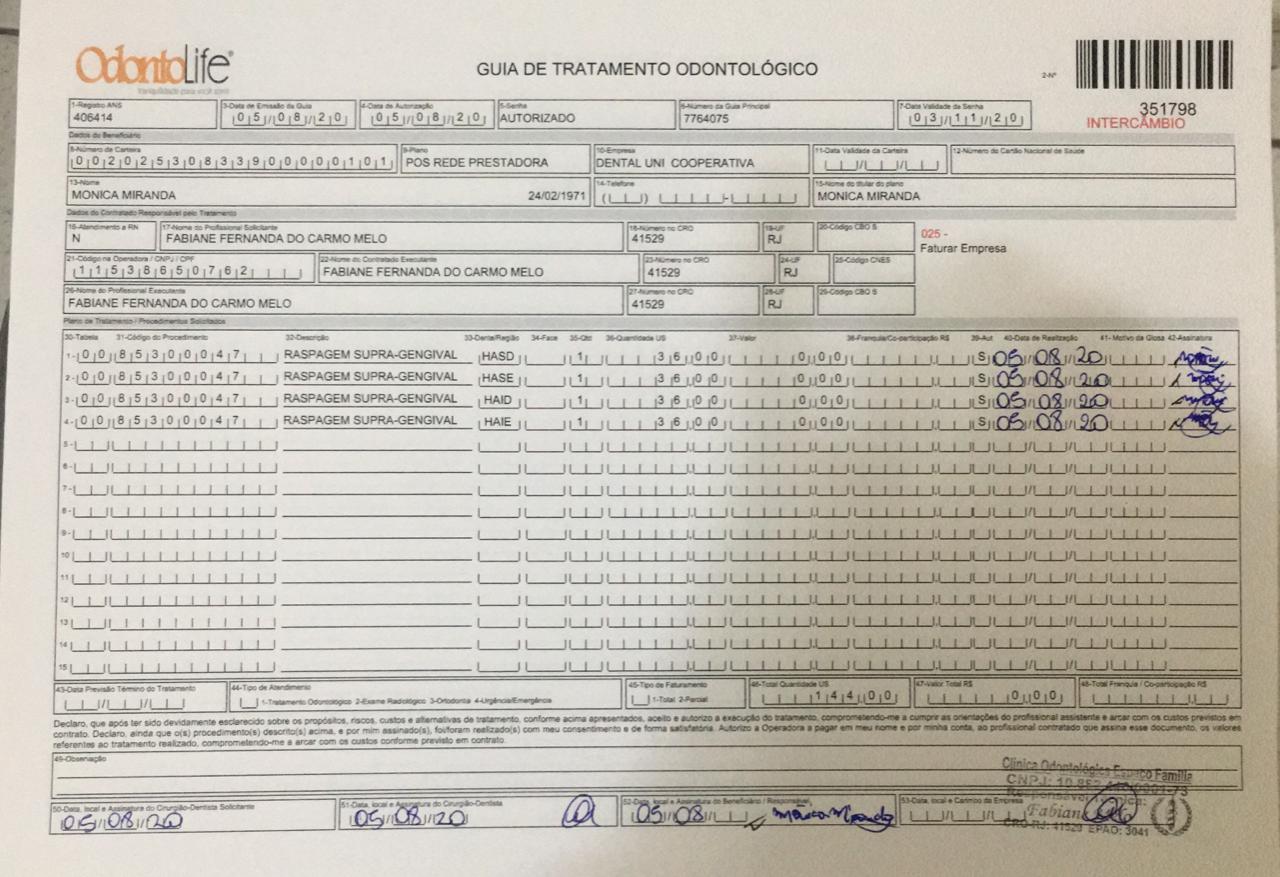 OdontoLife®
tranquilidade para você sorrir
GUIA DE TRATAMENTO ODONTOLÓGICO
2-Nº
351798
INTERCÂMBIO
1-Registro ANS 3-Data de Emissão da Guia 4-Data de Autorização 5-Senha 6-Número da Guia Principal 7-Data Validade da Senha
406414 05/08/20 05/08/20 AUTORIZADO 7764075 03/11/20
Dados do Beneficiário
8-Número de Carteira 9-Plano 10-Empresa 11-Data Validade da Carteira 12-Número do Cartão Nacional de Saúde
00202530833900000101 POS REDE PRESTADORA DENTAL UNI COOPERATIVA
13-Nome 14-Telefone 15-Nome do titular do plano
MONICA MIRANDA 24/02/1971 MONICA MIRANDA
Dados do Contratado Responsável pelo Tratamento
16-Atendimento a RN 17-Nome do Profissional Solicitante 18-Número no CRO 19-UF 20-Código CBO S
N FABIANE FERNANDA DO CARMO MELO 41529 RJ
025 -
Faturar Empresa
21-Código na Operadora / CNPJ / CPF 22-Nome do Contratado Executante 23-Número no CRO 24-UF 25-Código CNES
11538650762 FABIANE FERNANDA DO CARMO MELO 41529 RJ
26-Nome do Profissional Executante 27-Número no CRO 28-UF 29-Código CBO S
FABIANE FERNANDA DO CARMO MELO 41529 RJ
Plano de Tratamento / Procedimentos Solicitados
30-Tabela 31-Código do Procedimento 32-Descrição 33-Dente/Região 34-Face 35-Qtd 36-Quantidade US 37-Valor 38-Franquia/Co-participação R$ 39-Aut 40-Data de Realização 41- Motivo da Glosa 42-Assinatura
1- 00 85300047 RASPAGEM SUPRA-GENGIVAL HASD 1 36,00 0,00 S 05/08/20
2- 00 85300047 RASPAGEM SUPRA-GENGIVAL HASE 1 36,00 0,00 S 05/08/20
3- 00 85300047 RASPAGEM SUPRA-GENGIVAL HAID 1 36,00 0,00 S 05/08/20
4- 00 85300047 RASPAGEM SUPRA-GENGIVAL HAIE 1 36,00 0,00 S 05/08/20
5-
6-
7-
8-
9-
10
11
12
13
14
15
43-Data Previsão Término do Tratamento 44-Tipo de Atendimento 45-Tipo de Faturamento 46-Total Quantidade US 47-Valor Total R$ 48-Total Franquia / Co-participação R$
1-Tratamento Odontológico 2-Exame Radiológico 3-Ortodontia 4-Urgência/Emergência 1-Total 2-Parcial 144,00 0,00
Declaro, que após ter sido devidamente esclarecido sobre os propósitos, riscos, custos e alternativas de tratamento, conforme acima apresentados, aceito e autorizo a execução do tratamento, comprometendo-me a cumprir as orientações do profissional assistente e arcar com os custos previstos em
contrato. Declaro, ainda que o(s) procedimento(s) descrito(s) acima, e por mim assinado(s), foi/foram realizado(s) com meu consentimento e de forma satisfatória. Autorizo a Operadora a pagar em meu nome e por minha conta, ao profissional contratado que assina esse documento, os valores
referentes ao tratamento realizado, comprometendo-me a arcar com os custos conforme previsto em contrato.
49-Observação
Clínica Odontológica Espaço Família
CNPJ:
50-Data, local e Assinatura do Cirurgião-Dentista Solicitante 51-Data, local e Assinatura do Cirurgião-Dentista 52-Data, local e Assinatura do Beneficiário / Responsável 53-Data, local e Carimbo da Empresa
05/08/20 05/08/20 05/08/ Mônica Miranda
Fabian
CRO-RJ: 41529 EPAO: 3041